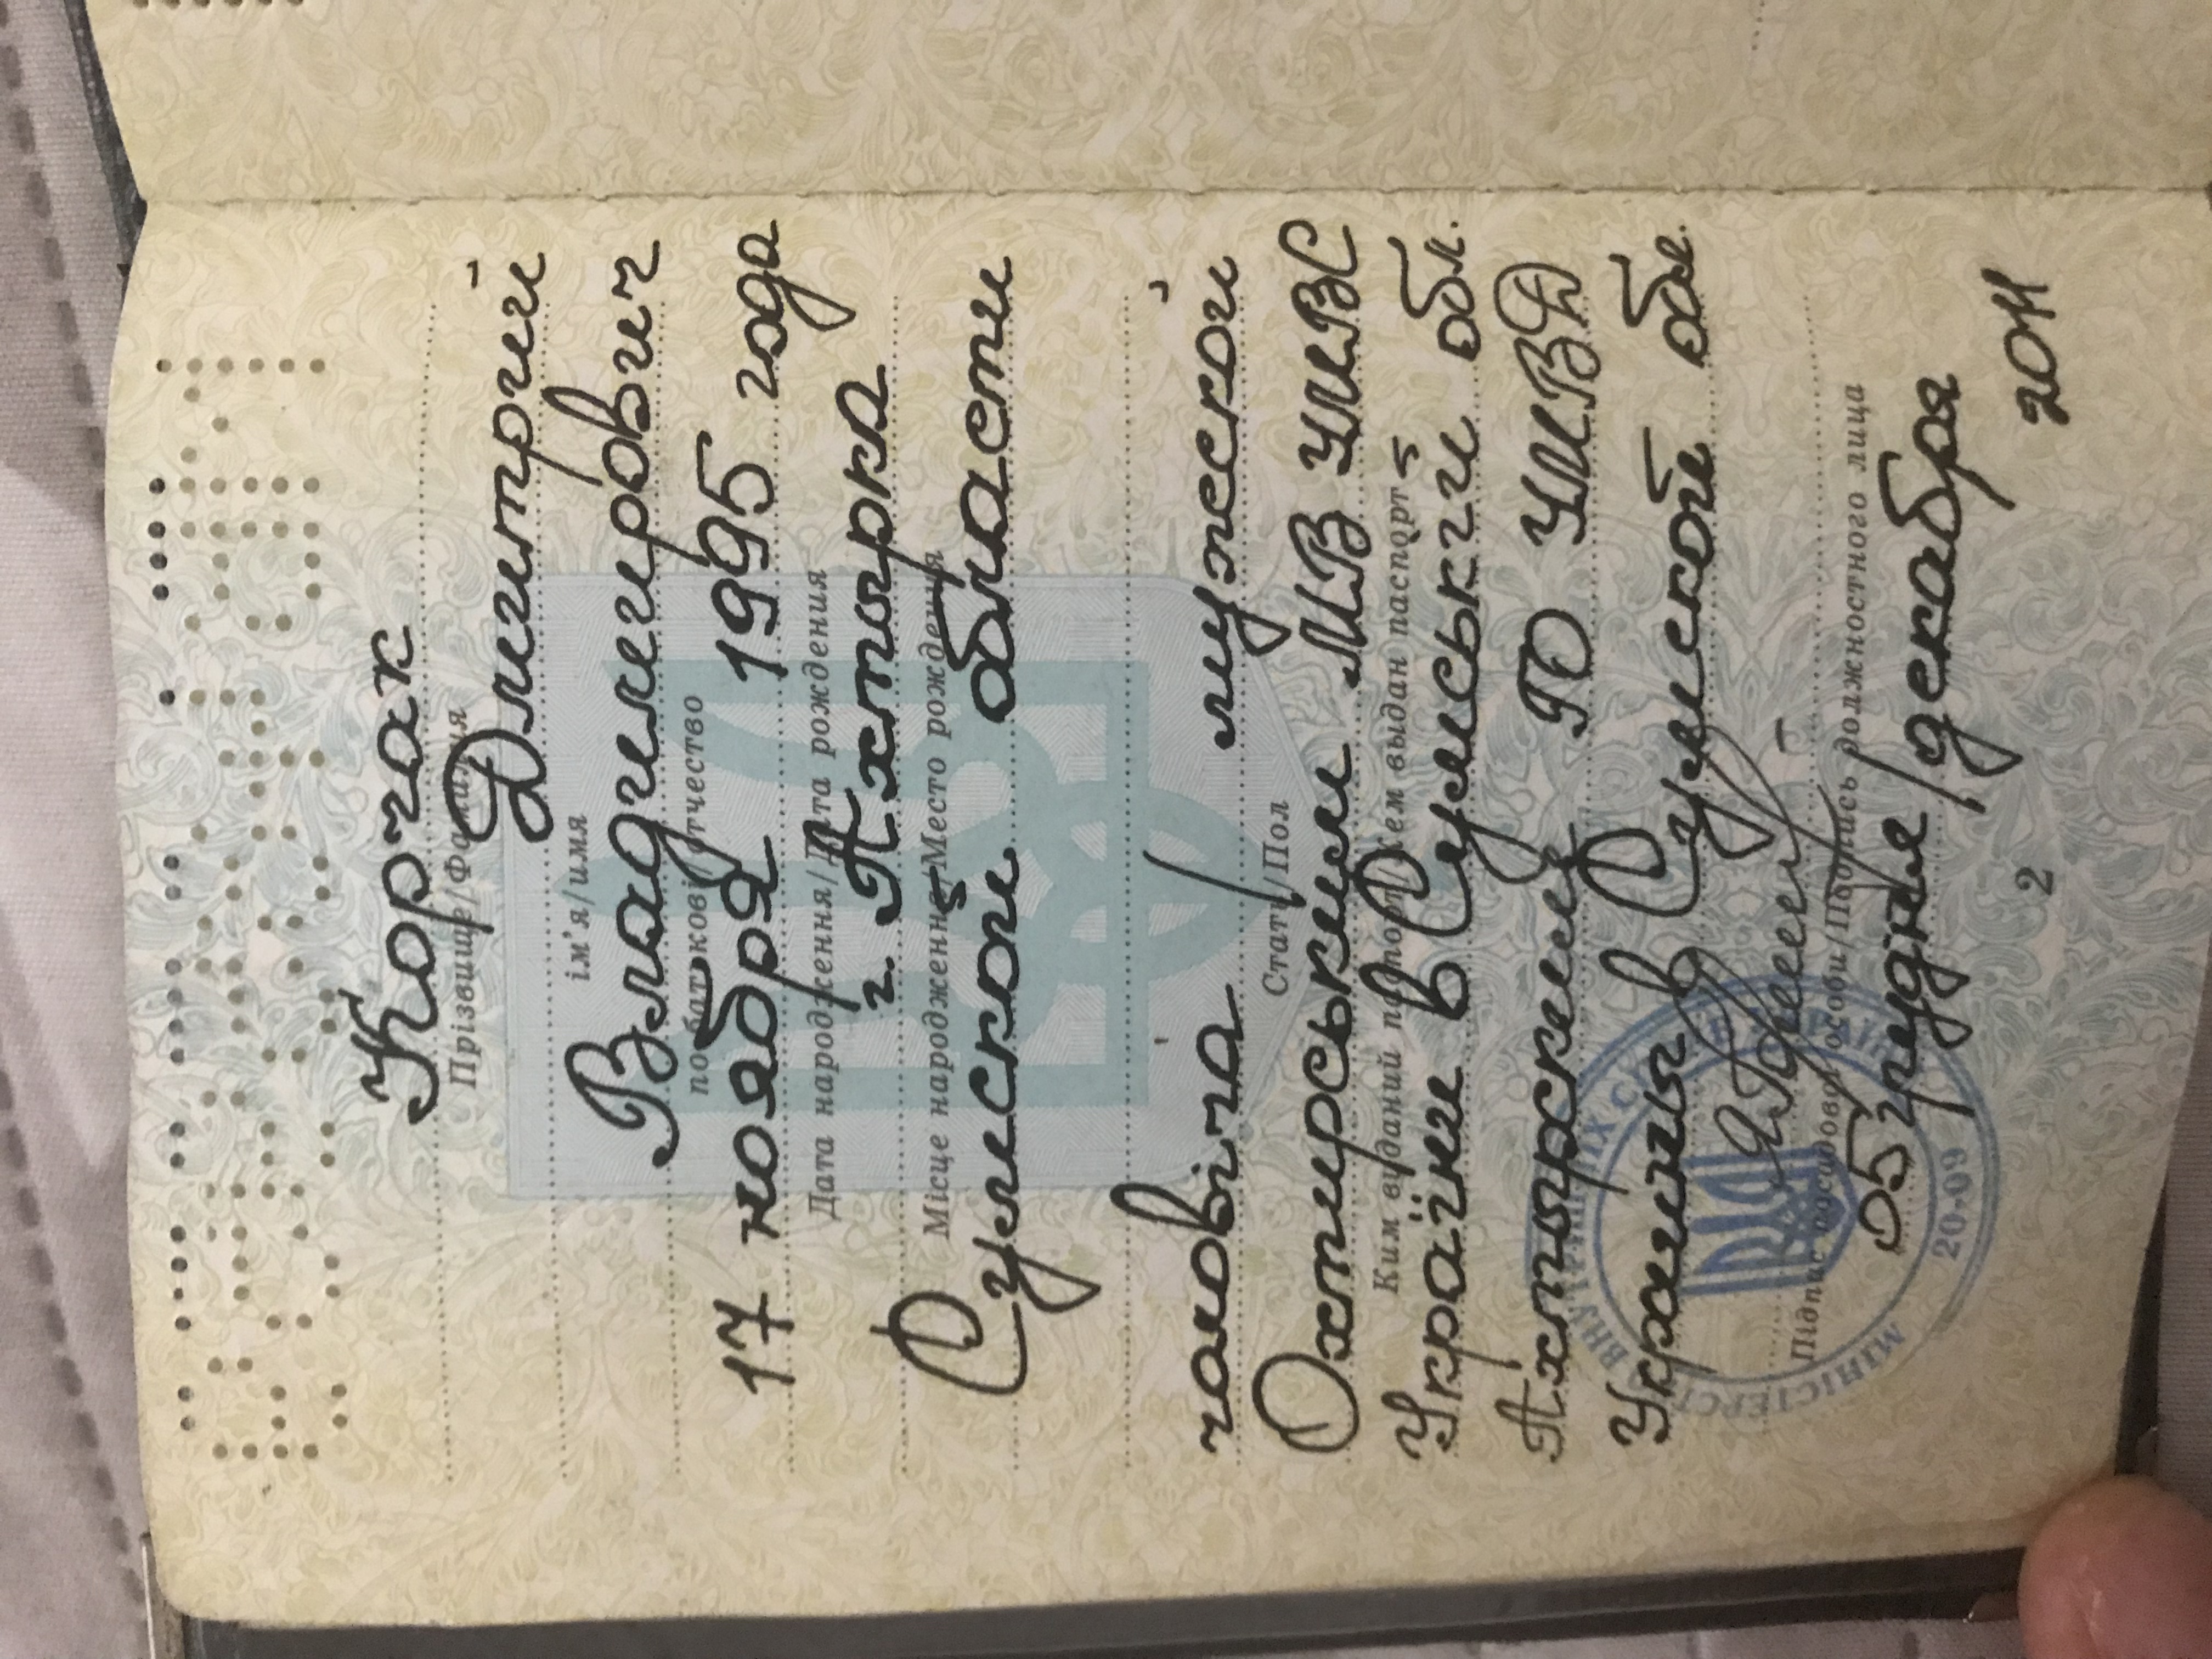 Корчак
Прізвище/Фамилия
Дмитрий
ім'я/имя
Владимирович
по батькові/отчество
17 ноября 1995 года
Дата народження/Дата рождения
г. Ахтырка
Місце народження/Место рождения
Сумской области
чоловіча / мужской
Стать/Пол
Охтирським МВ УМВС
Ким виданий паспорт/Кем выдан паспорт
України в Сумській обл.
Ахтырским ГО УМВД
Украины в Сумской обл.
Підпис посадової особи/Подпись должностного лица
05 грудня/декабря
2011
ВНУТРІШНІХ
20-09
2